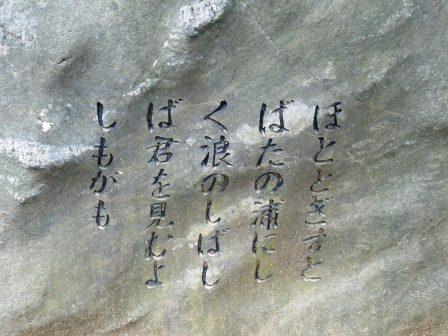 ほととぎすと
ばたの浦にし
く浪のしばし
ば君を見むよ
しもがも